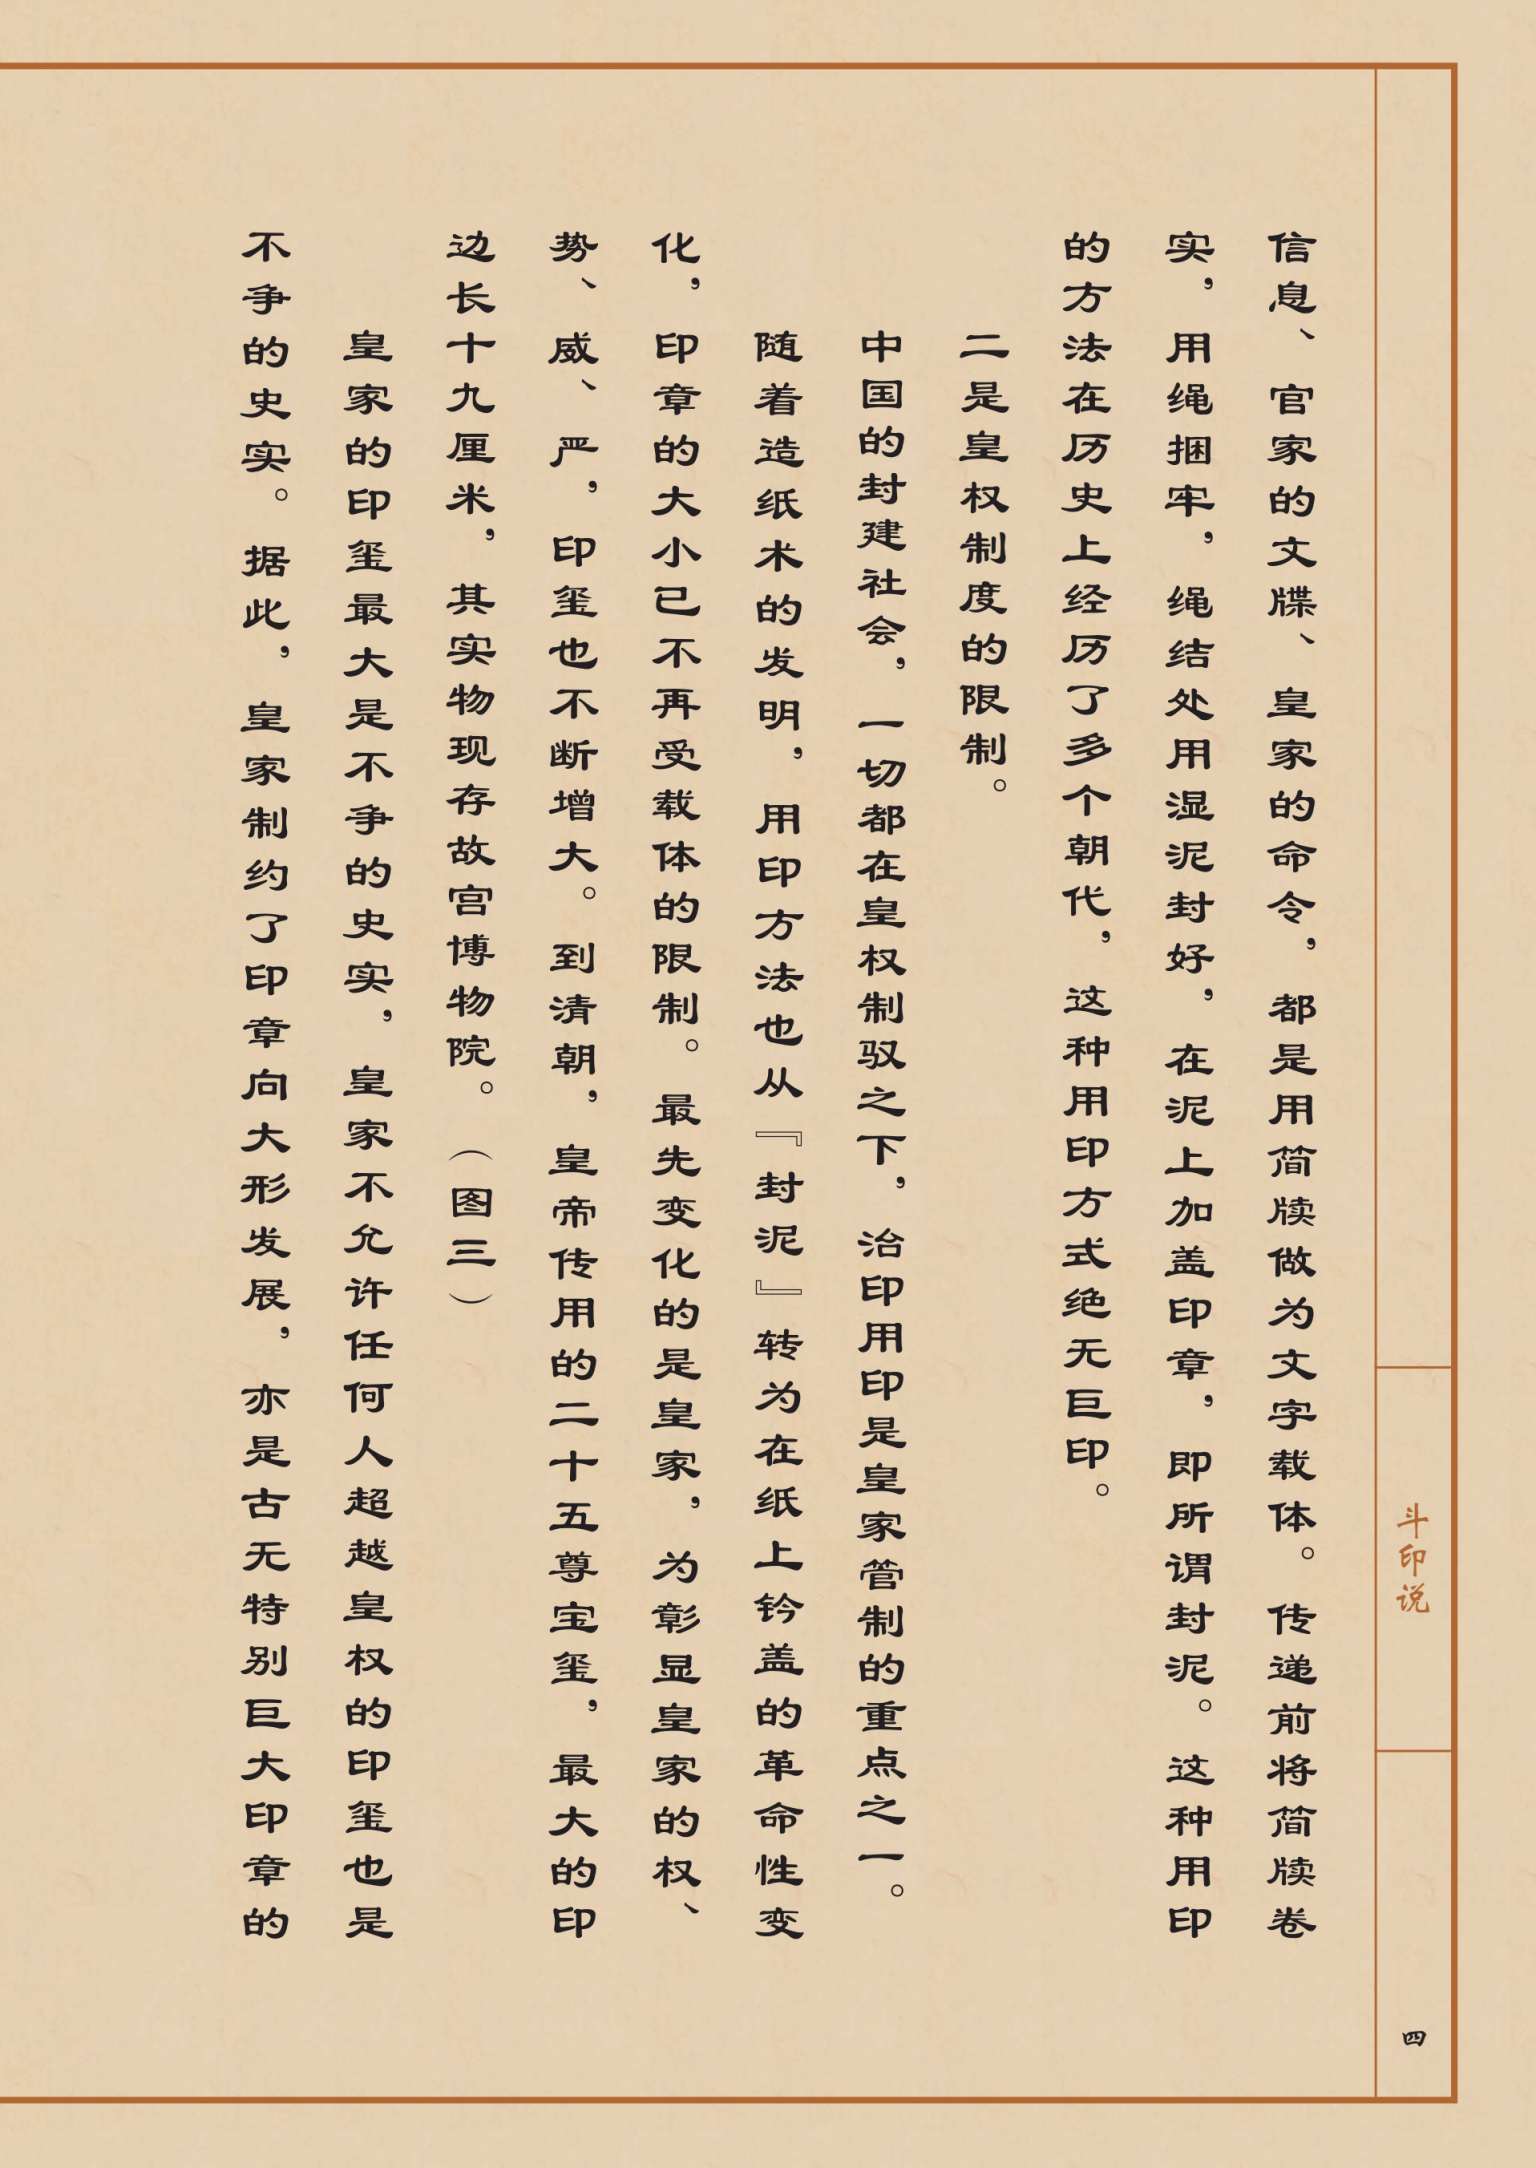 信息、官家的文牒、皇家的命令，都是用简牍做为文字载体。传递前将简牍卷
实，用绳捆牢，绳结处用湿泥封好，在泥上加盖印章，即所谓封泥。这种用印
的方法在历史上经历了多个朝代，这种用印方式绝无巨印。
二是皇权制度的限制。
中国的封建社会，一切都在皇权制驭之下，治印用印是皇家管制的重点之一。
随着造纸术的发明，用印方法也从『封泥』转为在纸上钤盖的革命性变
化，印章的大小已不再受载体的限制。最先变化的是皇家，为彰显皇家的权、
势、威、严，印玺也不断增大。到清朝，皇帝传用的二十五尊宝玺，最大的印
边长十九厘米，其实物现存故宫博物院。（图三）
皇家的印玺最大是不争的史实，皇家不允许任何人超越皇权的印玺也是
不争的史实。据此，皇家制约了印章向大形发展，亦是古无特别巨大印章的
斗印说
四